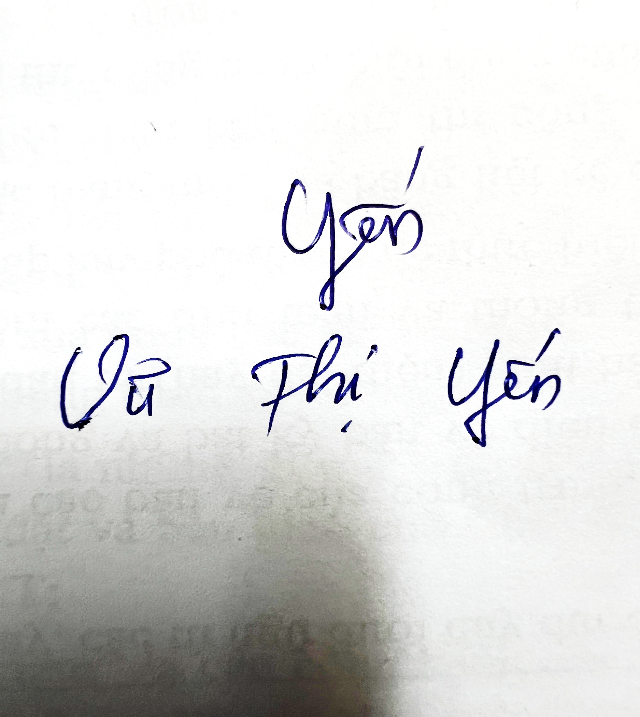 Yến
Vũ Thị Yến